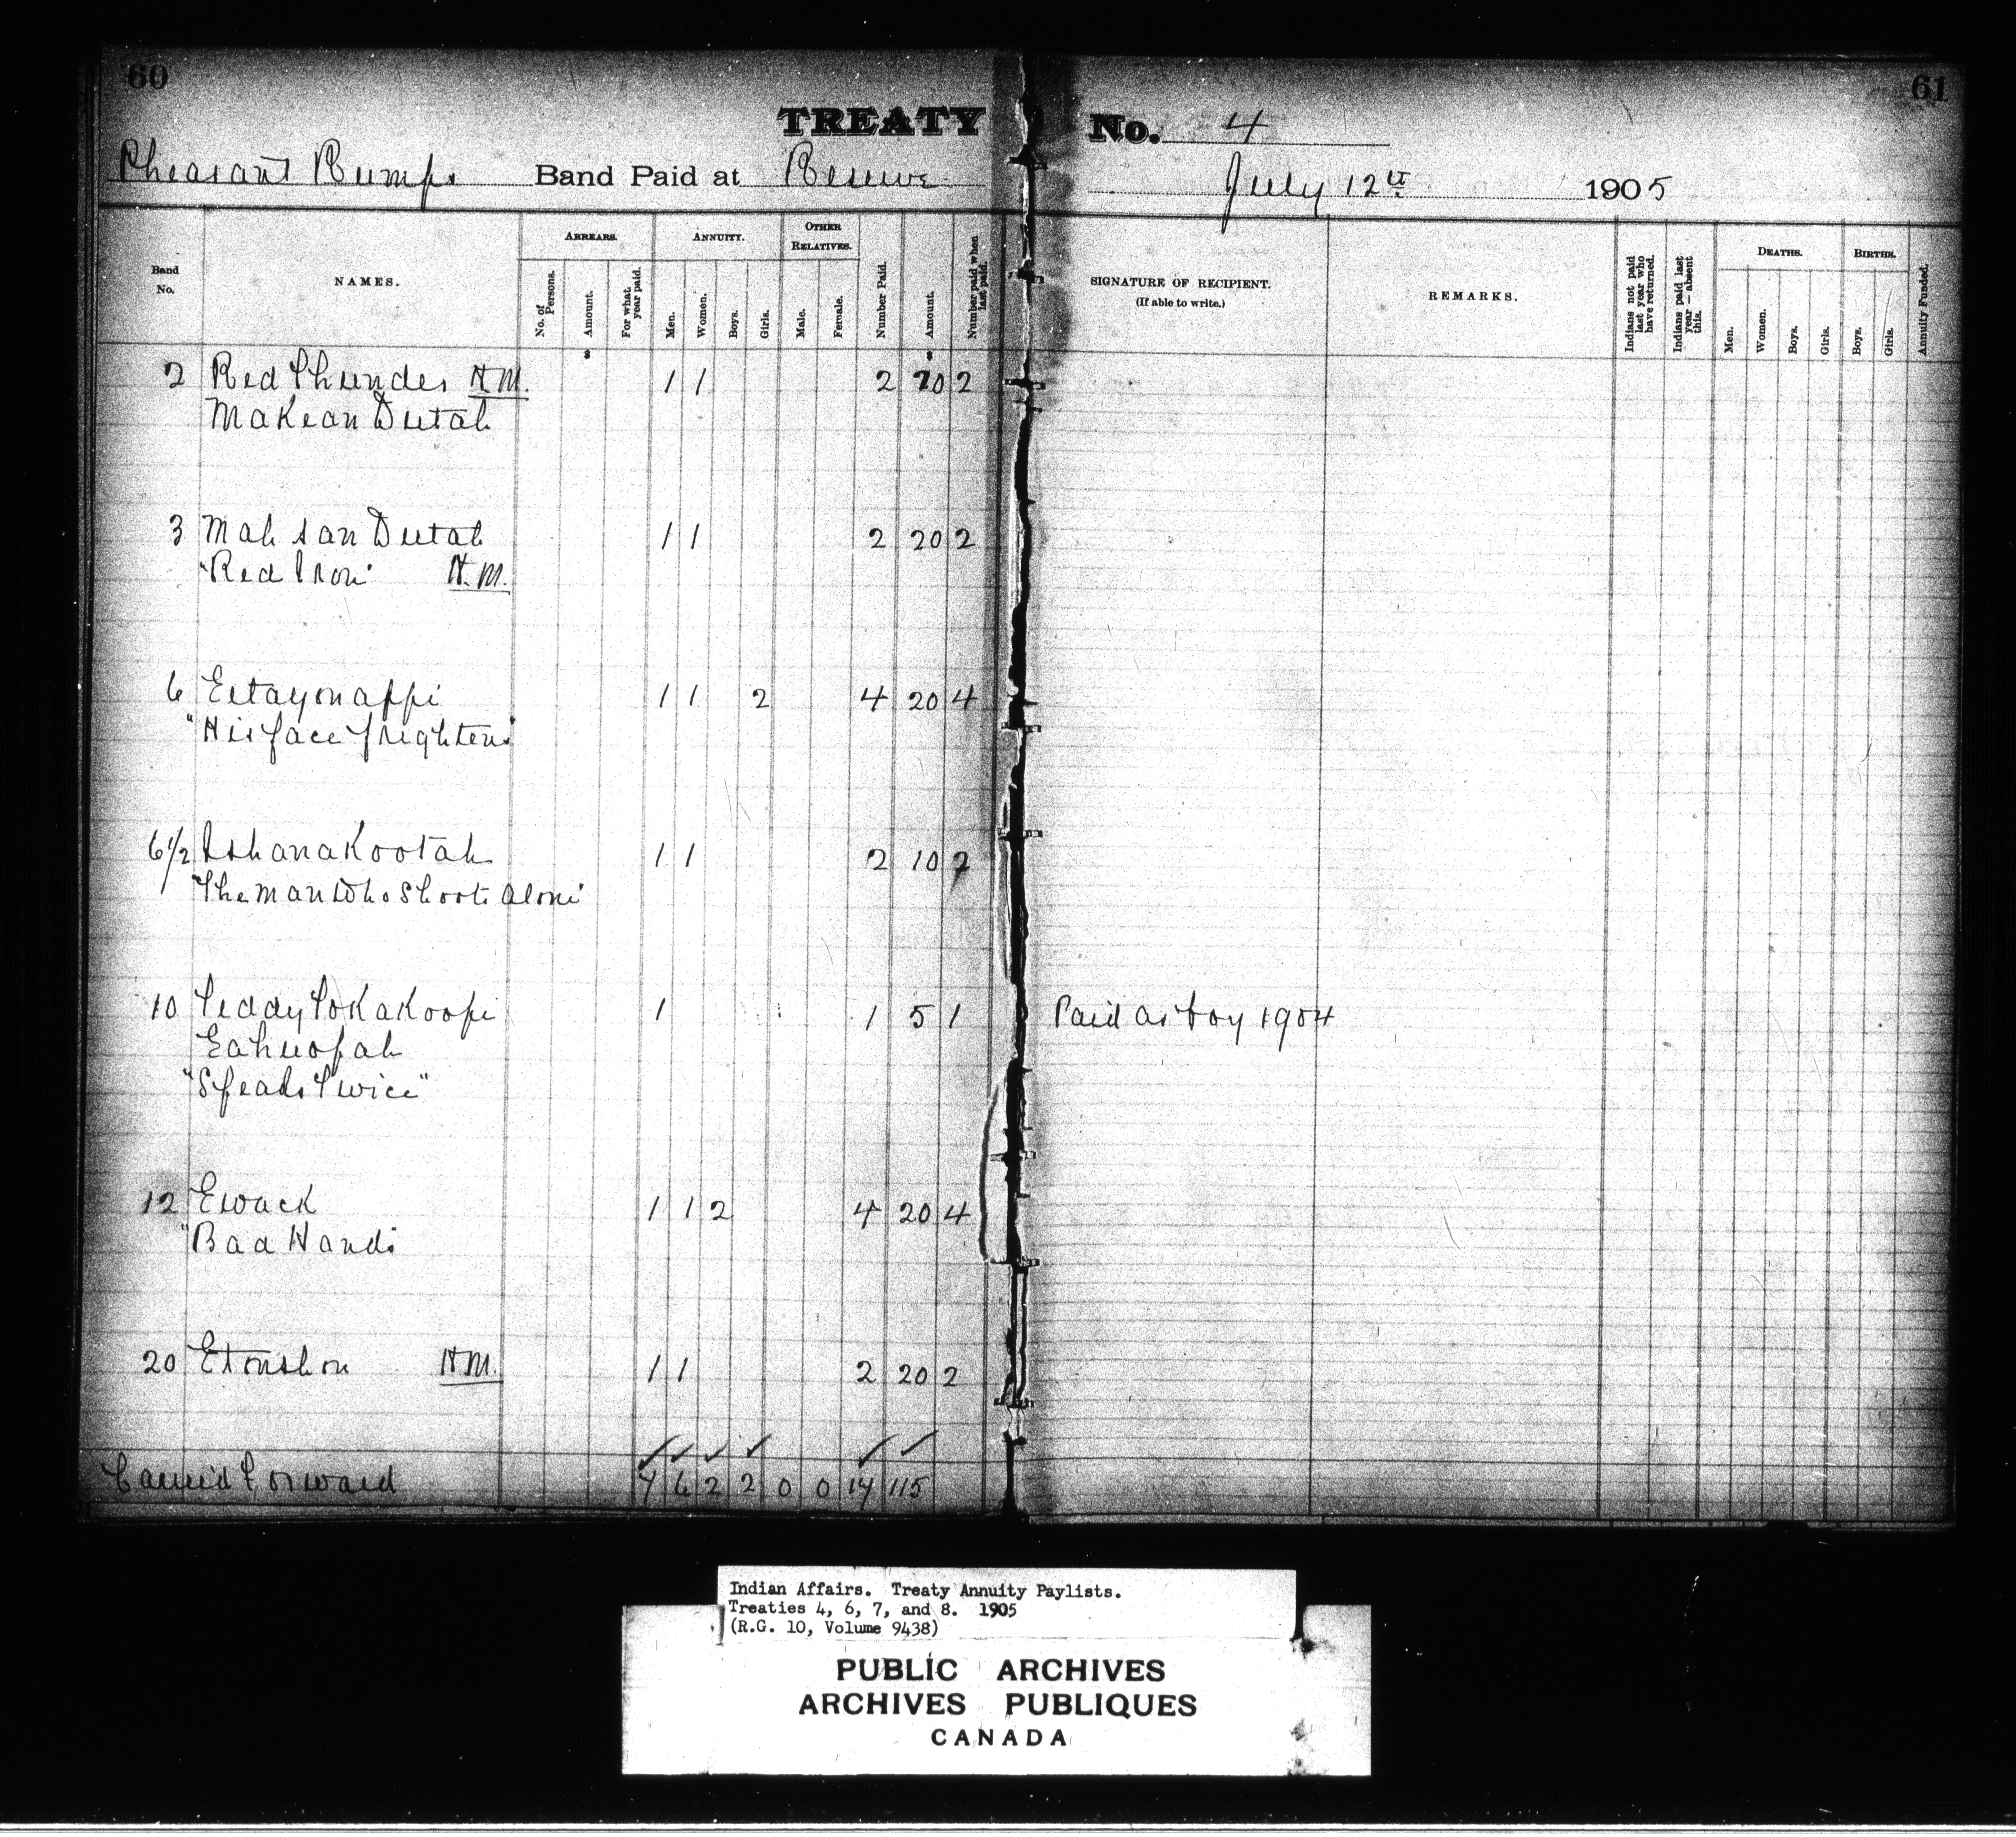 60
61
TREATY No. 4
Pheasant Rumps Band Paid at Reserve July 12th 1905
Band No.
NAMES.
ARREARS.
No. of Persons.
Amount.
For what year paid.
ANNUITY.
Men.
Women.
Boys.
Girls.
OTHER RELATIVES.
Male.
Female.
Number Paid.
Amount.
Number paid when last paid.
SIGNATURE OF RECIPIENT.
(If able to write.)
REMARKS.
Indians not paid last year who have returned.
Indians paid last year — absent this.
DEATHS.
Men.
Women.
Boys.
Girls.
BIRTHS.
Boys.
Girls.
Annuity Funded.
2 Red Thunder H.M. 1 1 2 20 2
Makean Dutah
3 Mah san Dutah 1 1 2 20 2
"Red Iron" H.M.
6 Eitayonappi 1 1 2 4 20 4
"His face frightens"
6 1/2 Ishanakootah 1 1 2 10 2
"The man who Shoots alone"
10 Teddy Tokakoopi 1 1 5 1 Paid as boy 1904
Eahnopah
"Speaks Twice"
12 Ewack 1 1 2 4 20 4
"Bad Hands
20 Etonshon H.M. 1 1 2 20 2
Carried Forward 7 6 2 2 0 0 17 115
Indian Affairs. Treaty Annuity Paylists.
Treaties 4, 6, 7, and 8. 1905
(R.G. 10, Volume 9438)
PUBLIC ARCHIVES
ARCHIVES PUBLIQUES
CANADA